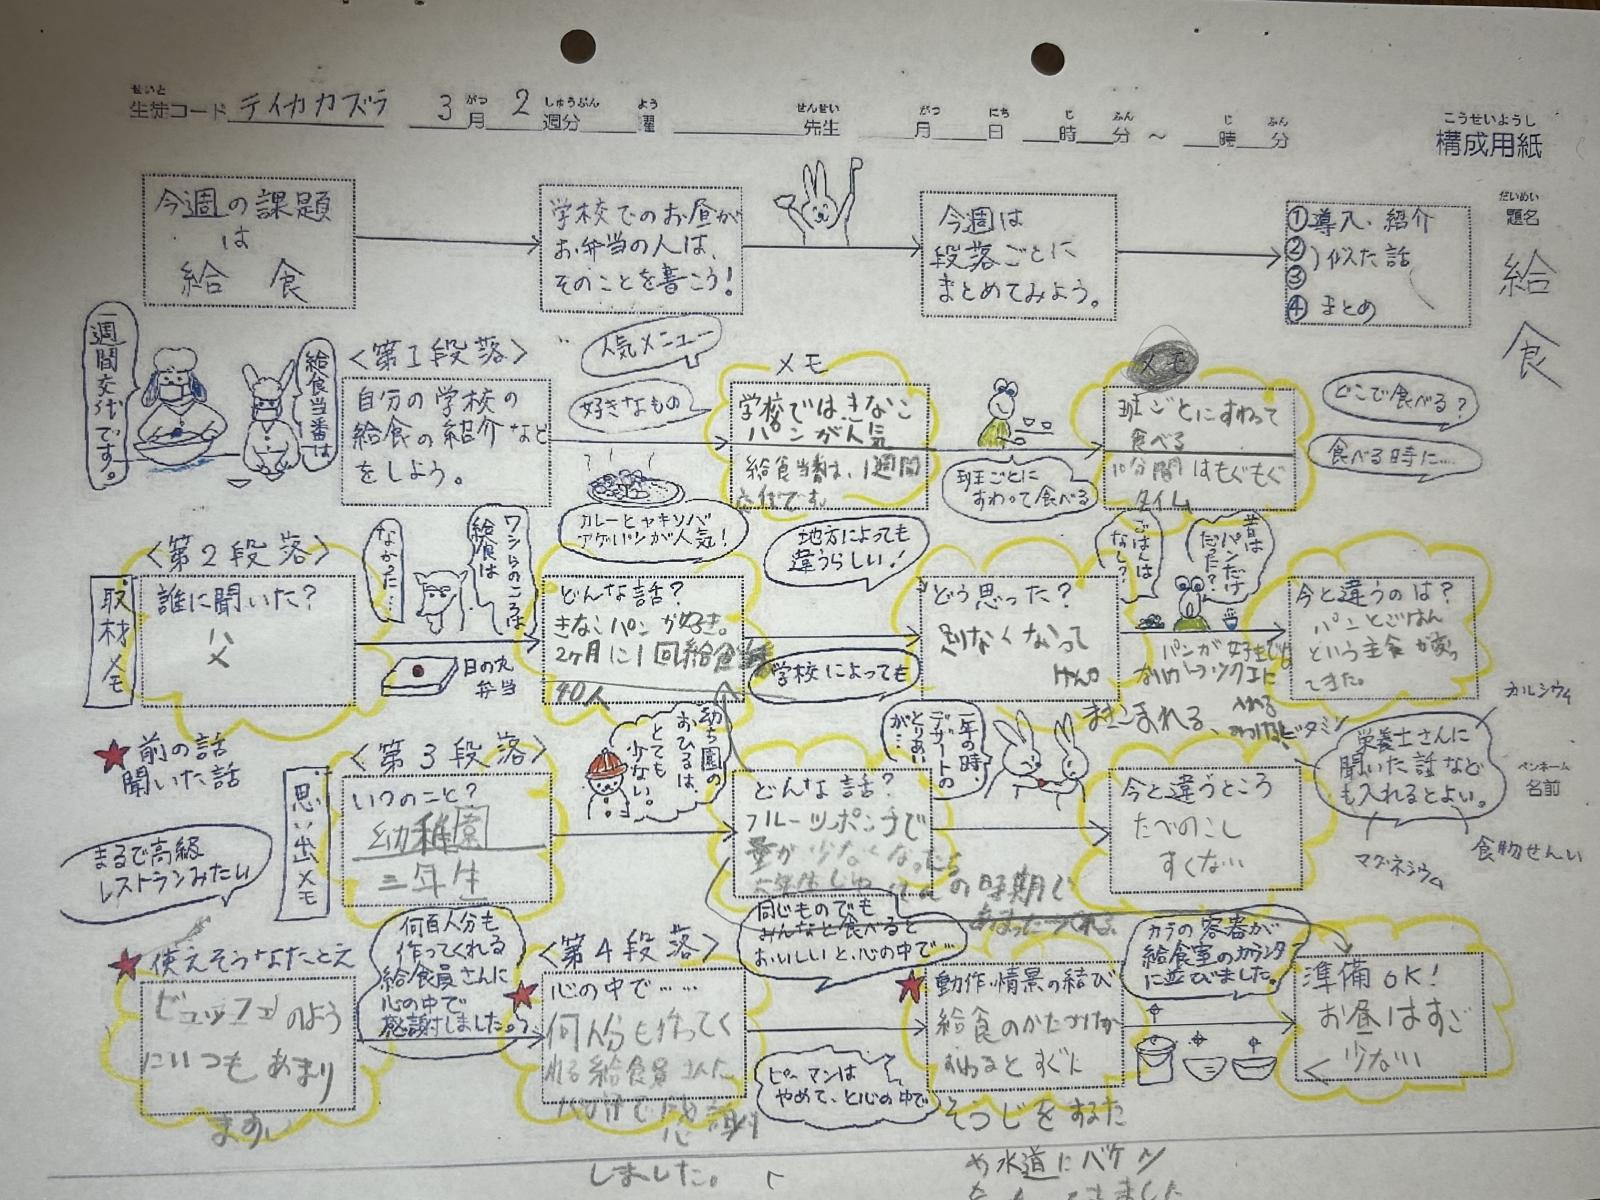 せいと
生徒コード テイカカズラ 3月 2週分 曜 先生 月 日 時 分 ～ 時 分
がつ しゅうぶん よう せんせい がつ にち じ ふん じ ふん
こうせいようし
構成用紙
だいめい
題名
給食
ペンネーム
名前
今週の課題
は
給 食
学校でのお昼が
お弁当の人は、
そのことを書こう！
今週は
段落ごとに
まとめてみよう。
①導入、紹介
②
③)似た話
④まとめ
一週間交代です。
給食当番は
〈第1段落〉
自分の学校の
給食の紹介など
をしよう。
人気メニュー
好きなもの
カレーとヤキソバ
アゲパンが人気！
メモ
学校ではきなこ
パンが人気
給食当番は、1週間
交代です。
班ごとに
すわって食べる
メモ
班ごとにすわって
食べる
10分間はもぐもぐ
タイム
どこで食べる？
食べる時に…
〈第2段落〉
取材メモ
誰に聞いた？
父
なかった…
ワシらのころは
給食は
日の丸
弁当
地方によっても
違うらしい！
学校によっても
どんな話？
きなこパンが好き。
2ヶ月に1回給食
40人
どう思った？
ごはんは
なし？
昔は
パンだけ
だった？
今と違うのは？
パンとごはん
という主食が変っ
てきた。
パンが
ビタミン
カルシウム
栄養士さんに
聞いた話など
も入れるとよい。
マグネシウム
食物せんい
★前の話
聞いた話
〈第3段落〉
思い出メモ
いつのこと？
幼稚園
三年生
幼ち園の
おひるは、
とても
少ない。
どんな話？
フルーツポンチで
量が少なくなったら
の時期で
一年の時、
デザートの
とりあい
が…
今と違うところ
たべのこし
すくない
まるで高級
レストランみたい
★使えそうなたとえ
ビュッフェのよう
にいつもあまり
ますい
何百人分も
作ってくれる
給食員さんに
心の中で
感謝しました。
〈第4段落〉
★心の中で……
何人分も作ってく
れる給食員さんに
感謝
しました。
同じものでも
みんなと食べると
おいしいと、心の中で…
ピーマンは
やめて、と心の中で
★動作・情景の結び
給食のかたづけが
すわるとすぐに
そうじをするた
め水道にバケツ
カラの容器が
給食室のカウンタ
に並びました。
準備OK！
お昼はすご
く少ない